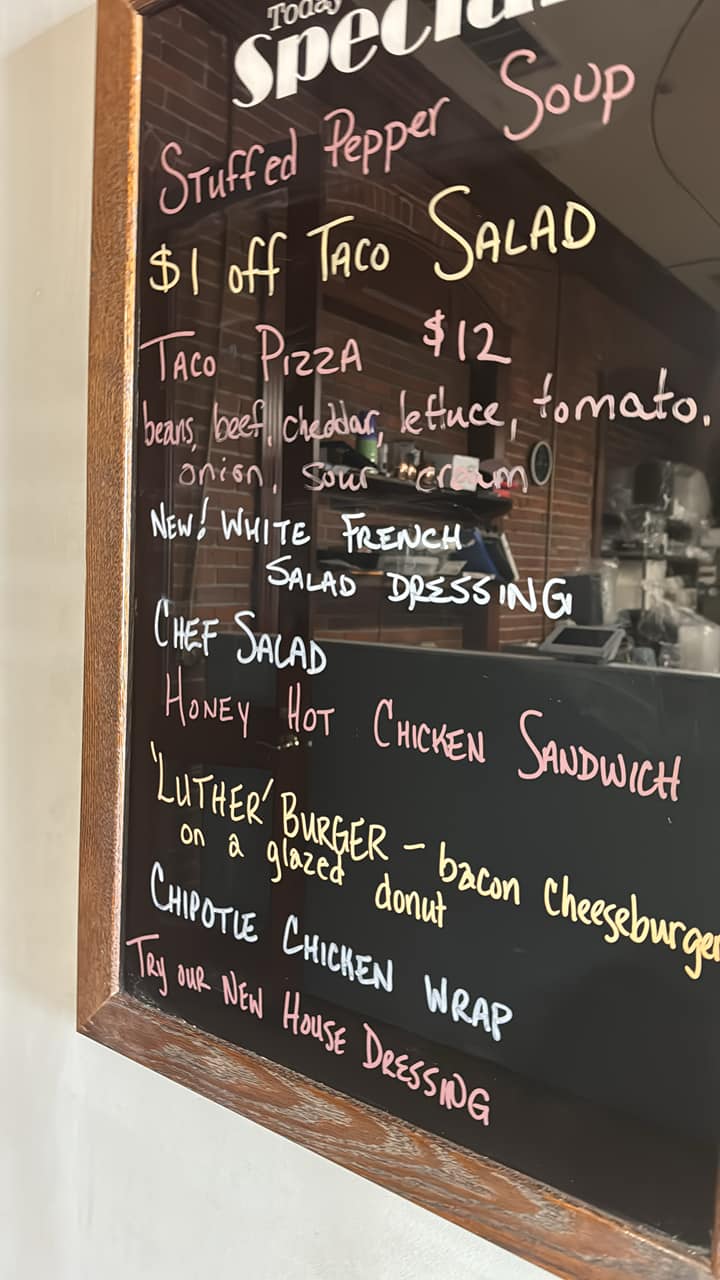 Today
Special
Stuffed Pepper Soup
$1 off Taco Salad
Taco Pizza $12
beans, beef, cheddar, lettuce, tomato,
onion, sour cream
New! White French
Salad Dressing
Chef Salad
Honey Hot Chicken Sandwich
'Luther' Burger – bacon cheeseburger
on a glazed donut
Chipotle Chicken Wrap
Try our New House Dressing